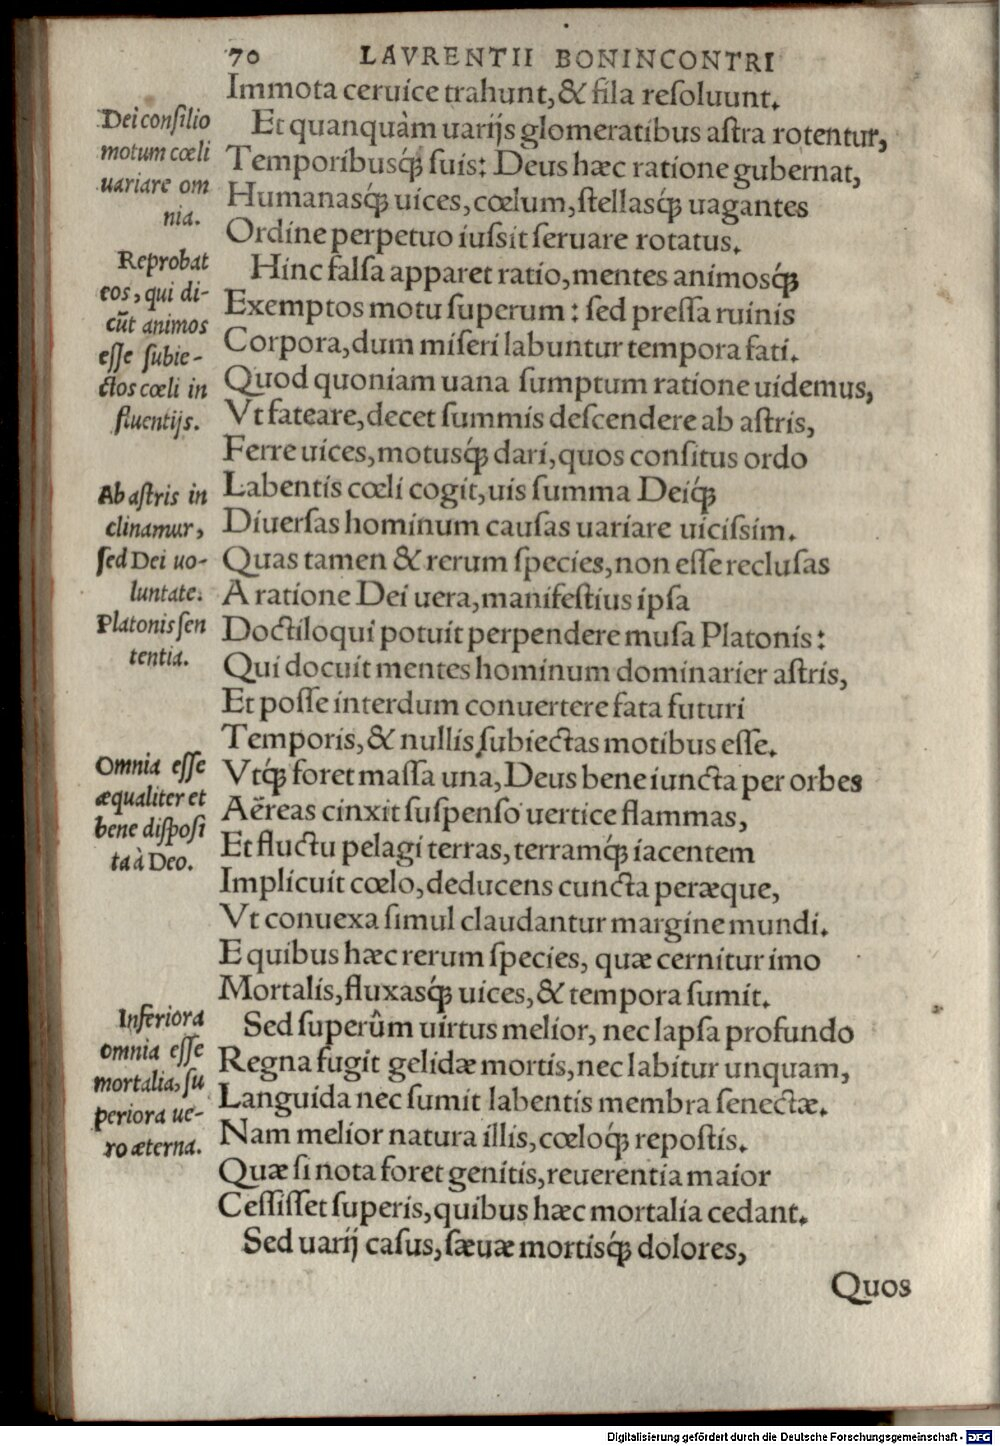 70 LAVRENTII BONINCONTRI
Immota ceruice trahunt, & fila reſoluunt.
Dei conſilio
motum cœli
uariare om
nia.
Et quanquàm uarijs glomeratibus aſtra rotentur,
Temporibusq́; ſuis: Deus hæc ratione gubernat,
Humanasq́; uices, cœlum, ſtellasq́; uagantes
Ordine perpetuo iuſsit ſeruare rotatus.
Reprobat
eos, qui di-
cūt animos
eſſe ſubie-
ctos cœli in
fluentijs.
Hinc falſa apparet ratio, mentes animosq́;
Exemptos motu ſuperum: ſed preſſa ruinis
Corpora, dum miſeri labuntur tempora fati.
Quod quoniam uana ſumptum ratione uidemus,
Vt fateare, decet ſummis deſcendere ab aſtris,
Ferre uices, motusq́; dari, quos conſitus ordo
Ab aſtris in
clinamur,
ſed Dei uo-
luntate.
Labentis cœli cogit, uis ſumma Deiq́;
Diuerſas hominum cauſas uariare uiciſsim.
Quas tamen & rerum ſpecies, non eſſe recluſas
A ratione Dei uera, manifeſtius ipſa
Platonis ſen
tentia.
Doctiloqui potuit perpendere muſa Platonis:
Qui docuit mentes hominum dominarier aſtris,
Et poſſe interdum conuertere fata futuri
Temporis, & nullis ſubiectas motibus eſſe.
Omnia eſſe
æqualiter et
bene diſpoſi
ta à Deo.
Vtq́; foret maſſa una, Deus bene iuncta per orbes
Aëreas cinxit ſuſpenſo uertice flammas,
Et fluctu pelagi terras, terramq́; iacentem
Implicuit cœlo, deducens cuncta peræque,
Vt conuexa ſimul claudantur margine mundi.
E quibus hæc rerum ſpecies, quæ cernitur imo
Mortalis, fluxasq́; uices, & tempora ſumit.
Inferiora
omnia eſſe
mortalia, ſu
periora ue-
ro æterna.
Sed ſuperûm uirtus melior, nec lapſa profundo
Regna fugit gelidæ mortis, nec labitur unquam,
Languida nec ſumit labentis membra ſenectæ.
Nam melior natura illis, cœloq́; repoſtis.
Quæ ſi nota foret genitis, reuerentia maior
Ceſſiſſet ſuperis, quibus hæc mortalia cedant.
Sed uarij caſus, ſæuæ mortisq́; dolores,
Quos
Digitalisierung gefördert durch die Deutsche Forschungsgemeinschaft - DFG